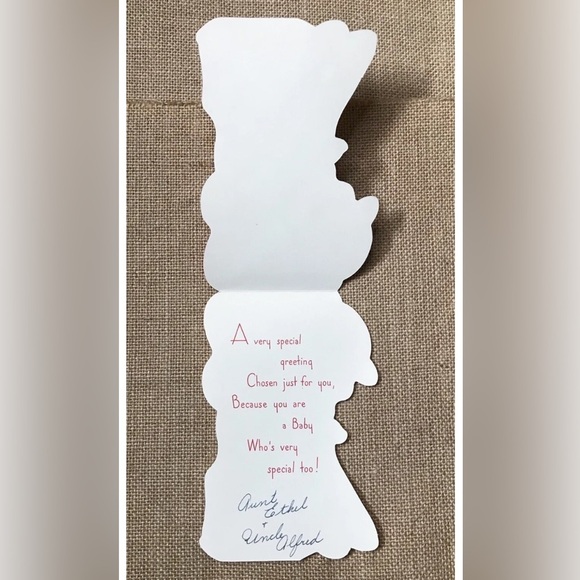 A very special
greeting
Chosen just for you,
Because you are
a Baby
Who's very
special too!
Aunt
Ethel
+
Uncle Alfred